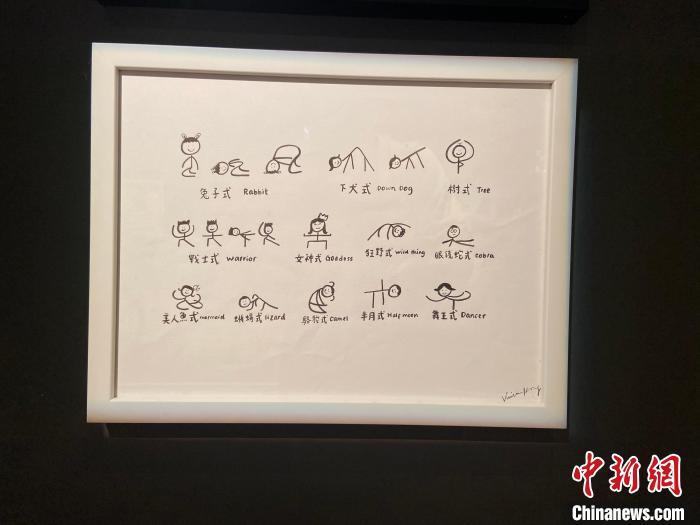 兔子式 Rabbit 下犬式 Down Dog 树式 Tree
战士式 warrior 女神式 Goddess 狂野式 wild thing 眼镜蛇式 cobra
美人鱼式 mermaid 蜥蜴式 lizard 骆驼式 Camel 半月式 Half moon 舞王式 Dancer
中新网
Chinanews.com